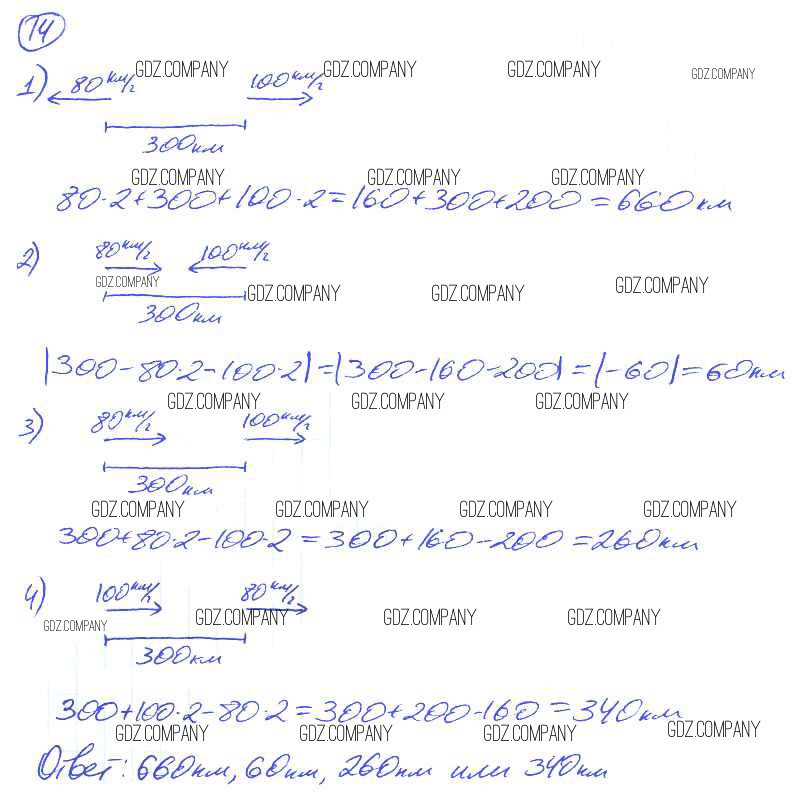 14
1) 80 км/ч 100 км/ч
300 км
80·2+300+100·2=160+300+200=660 км
2) 80 км/ч 100 км/ч
300 км
|300-80·2-100·2|=|300-160-200|=|-60|=60 км
3) 80 км/ч 100 км/ч
300 км
300+80·2-100·2=300+160-200=260 км
4) 100 км/ч 80 км/ч
300 км
300+100·2-80·2=300+200-160=340 км
Ответ: 660 км, 60 км, 260 км или 340 км
GDZ.COMPANY GDZ.COMPANY GDZ.COMPANY GDZ.COMPANY
GDZ.COMPANY GDZ.COMPANY GDZ.COMPANY
GDZ.COMPANY GDZ.COMPANY GDZ.COMPANY GDZ.COMPANY
GDZ.COMPANY GDZ.COMPANY GDZ.COMPANY
GDZ.COMPANY GDZ.COMPANY GDZ.COMPANY GDZ.COMPANY
GDZ.COMPANY GDZ.COMPANY GDZ.COMPANY GDZ.COMPANY
GDZ.COMPANY GDZ.COMPANY GDZ.COMPANY GDZ.COMPANY